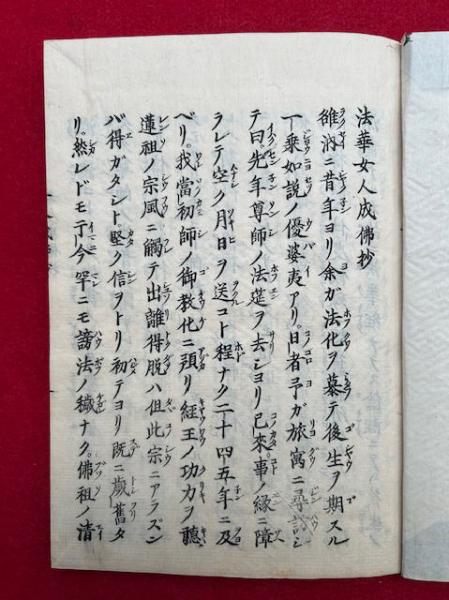 法華女人成佛抄
雒汭ニ昔年ヨリ余ガ法化ヲ慕テ後生ヲ期スル
一乗如説ノ優婆夷アリ。日者予ガ旅寓ニ尋訪シ
テ曰。先年尊師ノ法莚ヲ去シヨリ已來。事ノ縁ニ障
ラレテ空ク月日ヲ送コト程ナク二十四五年ニ及
ベリ。我當初師ノ御教化ニ預リ經王ノ功力ヲ聽
蓮祖ノ宗風ニ觸テ出離得脱ハ但此宗ニアラズン
バ得ガタシト堅ク信ヲトリ初テヨリ既ニ歳舊タ
リ。然レドモ于今罕ニモ謗法ノ穢ナク。佛祖ノ清